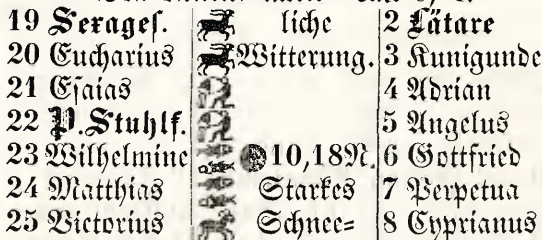 19 Sexages. liche 2 Lätare
20 Eucharius Witterung. 3 Kunigunde
21 Esaias 4 Adrian
22 P. Stuhlf. 5 Angelus
23 Wilhelmine 10,18N. 6 Gottfried
24 Matthias Starkes 7 Perpetua
25 Victorius Schnee= 8 Cyprianus